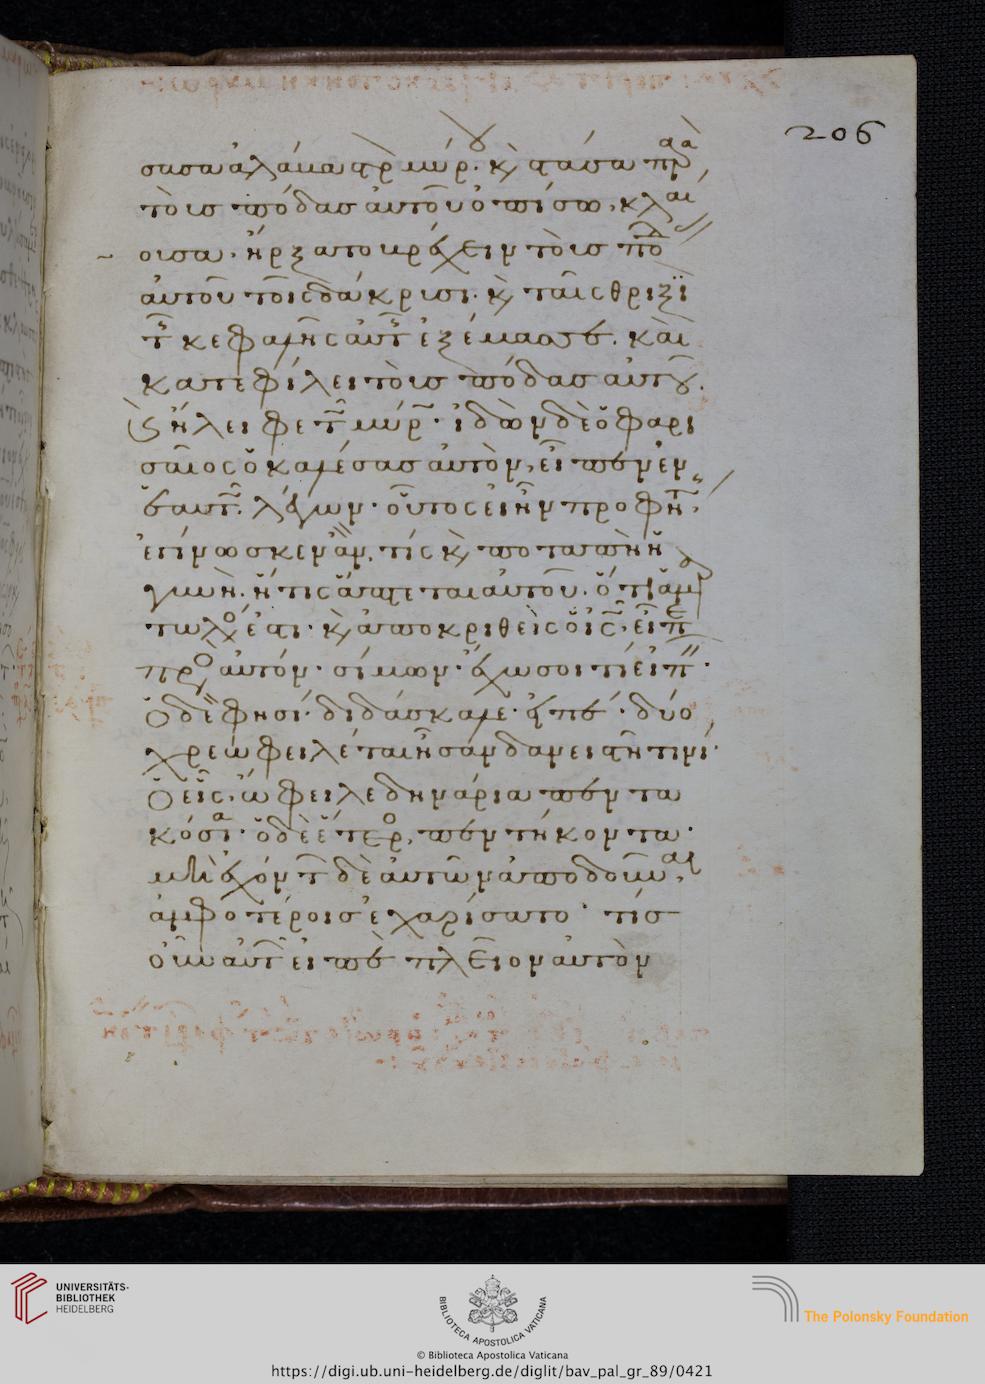 206
σασα ἀλάβαστρ μύρου. κ στάσα παρὰ
τοὺς πόδας αὐτοῦ ὀπίσω, κλαί
ουσα. ἤρξατο βρέχειν τοὺς πόδ
αὐτοῦ τοῖς δάκρυσι. κ ταῖς θριξὶ
τῆς κεφαλῆς αὐτῆς ἐξέμασσε. καὶ
κατεφίλει τοὺς πόδας αὐτοῦ.
κ ἤλειφε τῶ μύρω. ἰδὼν δὲ ὁ φαρι
σαῖος ὁ καλέσας αὐτὸν, εἶπεν ἐν
ἑαυτῶ. λέγων. οὗτος εἰ ἦν προφήτης,
ἐγίνωσκεν ἂν, τίς κ ποταπὴ ἡ
γυνὴ. ἥτις ἅπτεται αὐτοῦ. ὅτι ἁμαρ
τωλός ἐστι. κ ἀποκριθεὶς ὁ ις. εἶπε
πρὸς αὐτόν. σίμων. ἔχω σοι τί εἰπεῖν.
ὁ δέ φησί. διδάσκαλε. εἰπέ. δύο
χρεωφειλέται ἦσαν δανειστῆ τινί.
ὁ εἷς, ὤφειλε δηνάρια πεντα
κόσια. ὁ δὲ ἕτερος, πεντήκοντα.
μὴ ἐχόντων δὲ αὐτῶν ἀποδοῦναι,
ἀμφοτέροις ἐχαρίσατο. τίς
οὖν αὐτῶν εἰπὲ πλεῖον αὐτὸν
UNIVERSITÄTS-
BIBLIOTHEK
HEIDELBERG
BIBLIOTECA APOSTOLICA VATICANA
The Polonsky Foundation
© Biblioteca Apostolica Vaticana
https://digi.ub.uni-heidelberg.de/diglit/bav_pal_gr_89/0421